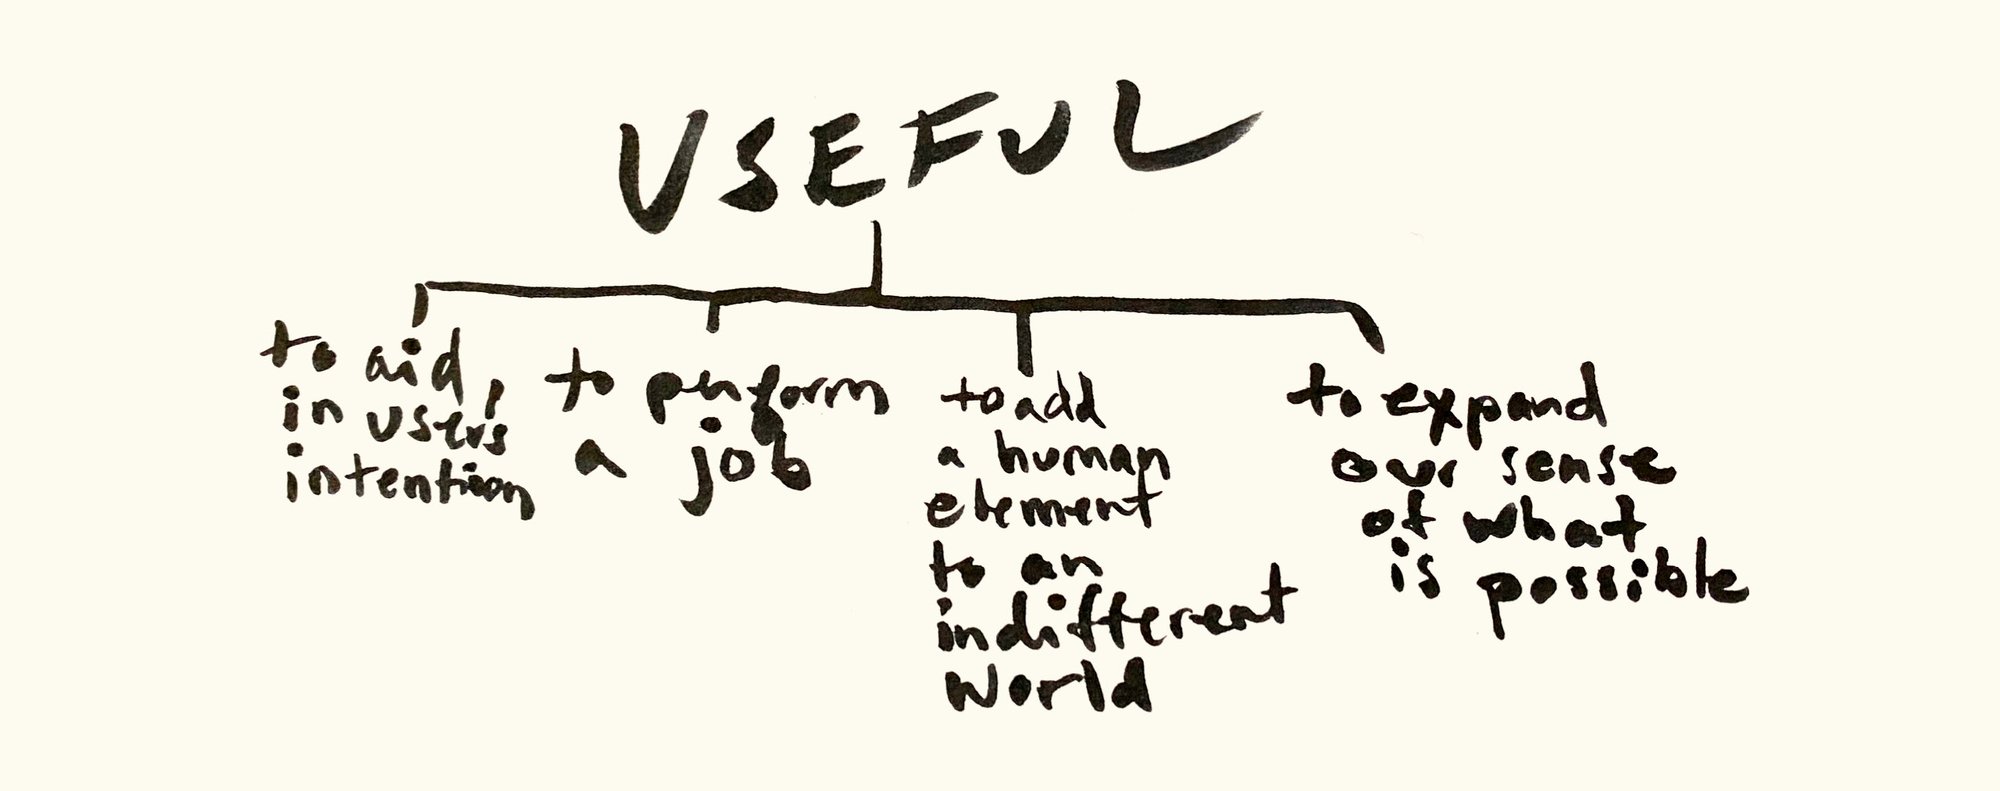 USEFUL
to aid,
in users'
intention
to perform
a job
to add
a human
element
to an
indifferent
world
to expand
our sense
of what
is possible